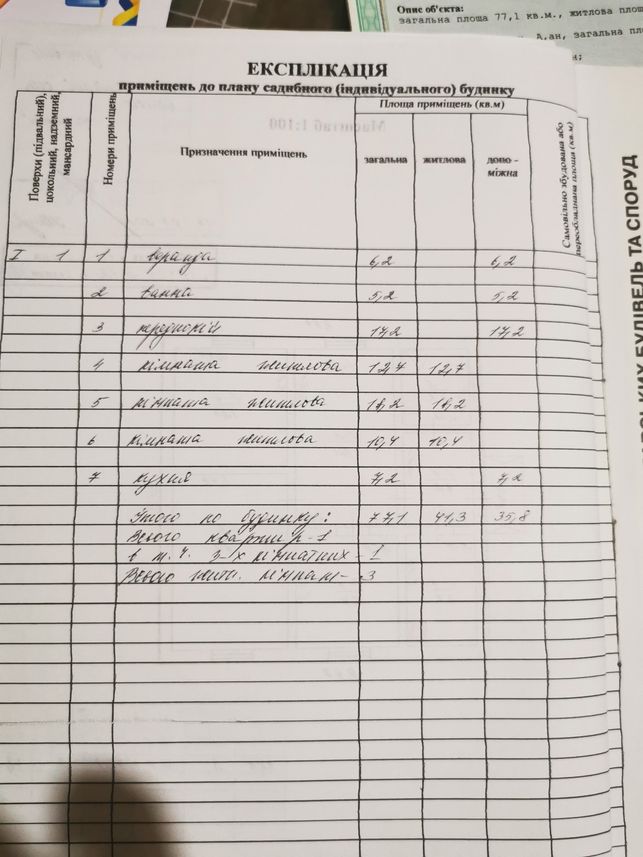 Опис об'єкта:
загальна площа 77,1 кв.м., житлова
загальна
ЕКСПЛІКАЦІЯ
приміщень до плану садибного (індивідуального) будинку
Поверхи (підвальний), цокольний, надземний, мансардний
Номери приміщень
Призначення приміщень
Площа приміщень (кв.м)
загальна житлова допо - міжна
Самовільно збудована або переобладнана площа (кв.м)
I 1 1 веранда 6,2 6,2
2 ванна 5,2 5,2
3 передпокій 17,2 17,2
4 кімната житлова 12,7 12,7
5 кімната житлова 18,2 18,2
6 кімната житлова 10,4 10,4
7 кухня 7,2 7,2
Итого по будинку: 77,1 41,3 35,8
Всього квартир - 1
в т.ч. 3-х кімнатних - 1
Всього житл. кімнат - 3
БУДІВЕЛЬ ТА СПОРУД